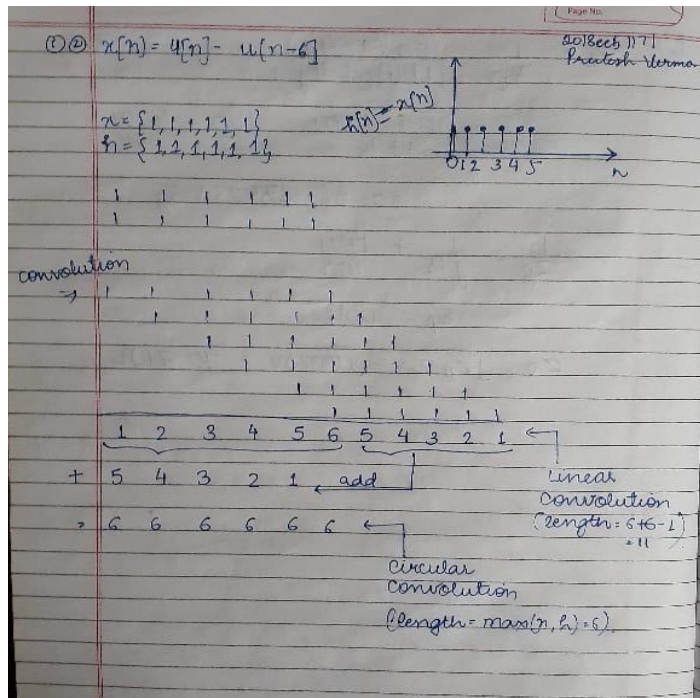 Page No.
① ② x[n] = u[n] - u[n-6]
2018eeb1171
Pratosh Verma
x = {1,1,1,1,1,1}
h = {1,1,1,1,1,1}
h[n] = x[n]
0 1 2 3 4 5
n
1 1 1 1 1 1
1 1 1 1 1 1
convolution
→ 1 1 1 1 1 1
1 1 1 1 1 1
1 1 1 1 1 1
1 1 1 1 1 1
1 1 1 1 1 1
1 1 1 1 1 1
1 2 3 4 5 6 5 4 3 2 1
+ 5 4 3 2 1 add
Linear
convolution
(length = 6+6-1
= 11
= 6 6 6 6 6 6
circular
convolution
(length = max(x, h) = 6)